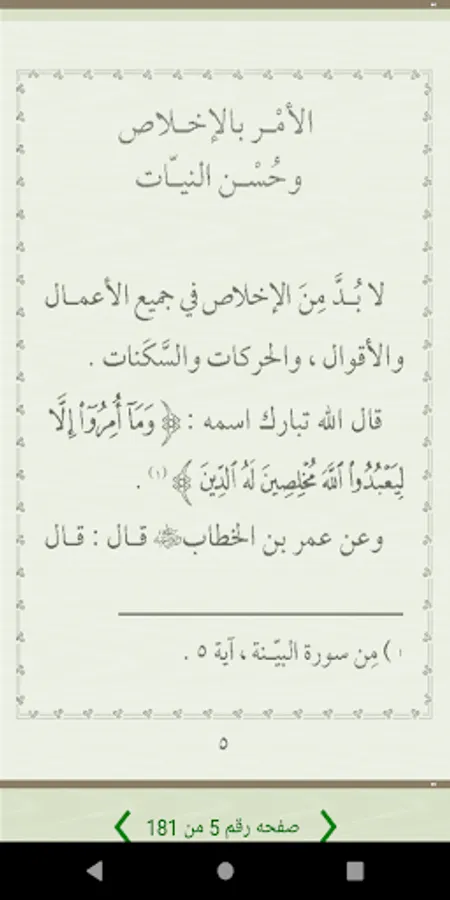 الأمْـر بالإخـلاص
وحُسْـن النيـّات
لا بُـدَّ مِنَ الإخلاص في جميع الأعمـال
والأقوال ، والحركات والسَّكَنات .
قال الله تبارك اسمه : ﴿ وَمَآ أُمِرُوٓا۟ إِلَّا
لِيَعْبُدُوا۟ ٱللَّهَ مُخْلِصِينَ لَهُ ٱلدِّينَ ﴾ (١) .
وعن عمر بن الخطاب ﷺ قـال : قـال
١) مِن سورة البيّـنة ، آية ٥ .
٥
صفحه رقم 5 من 181